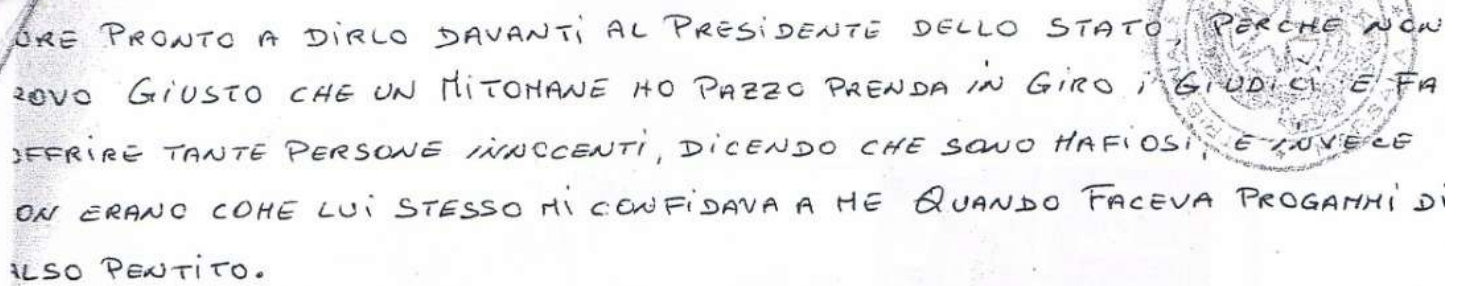 ORE PRONTO A DIRLO DAVANTI AL PRESIDENTE DELLO STATO, PERCHE NON
ROVO GIUSTO CHE UN MITOMANE HO PAZZO PRENDA IN GIRO i GIUDICI E FA
OFFRIRE TANTE PERSONE INNOCENTI, DICENDO CHE SONO MAFIOSI, E INVECE
ON ERANO COME LUI STESSO MI CONFIDAVA A ME QUANDO FACEVA PROGAMMI DI
ALSO PENTITO.